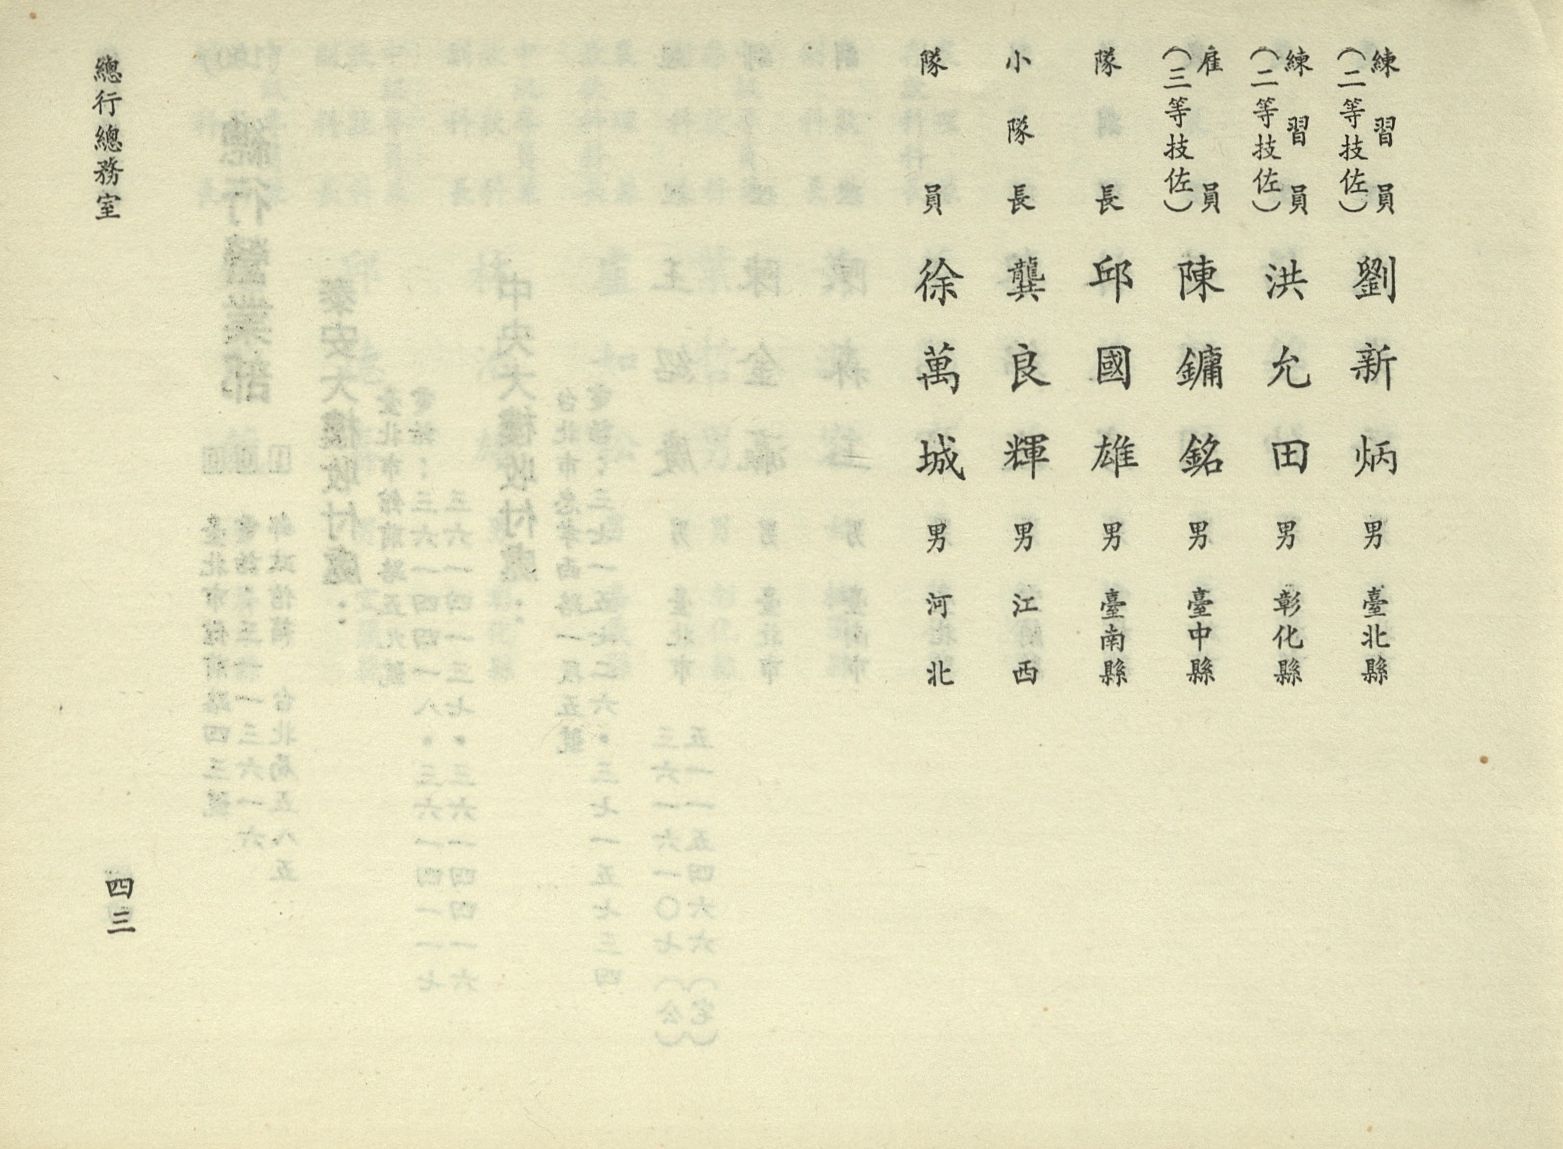 練習員(二等技佐) 劉新炳 男 臺北縣
練習員(二等技佐) 洪允田 男 彰化縣
雇員(三等技佐) 陳鏞銘 男 臺中縣
隊長 邱國雄 男 臺南縣
小隊長 龔良輝 男 江西
隊員 徐萬城 男 河北
總行總務室 四三